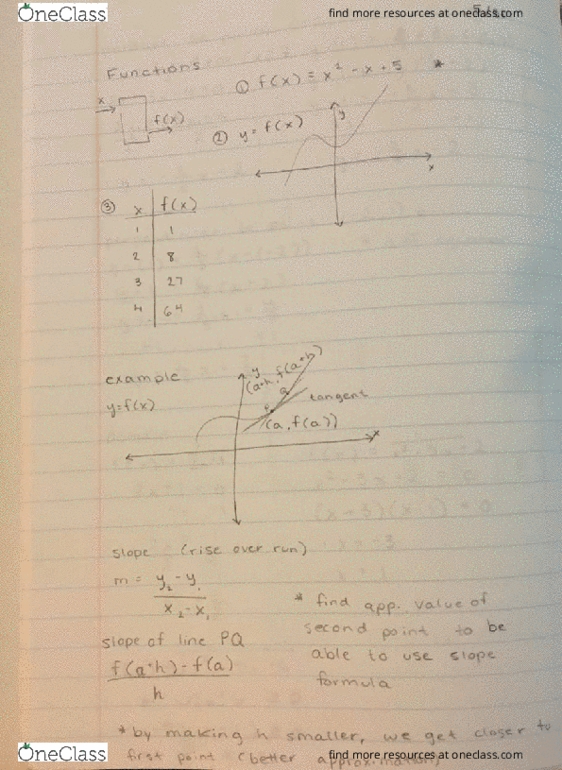 OneClass
find more resources at oneclass.com
Functions
① f(x) = x² - x + 5 *
x
f(x)
② y = f(x)
y
x
③ x f(x)
1 1
2 8
3 27
4 64
example
y=f(x)
y
(a+h, f(a+h))
Q
tangent
P
(a, f(a))
x
slope (rise over run)
m = y₂ - y₁
x₂ - x₁
* find app. value of
second point to be
able to use slope
formula
slope of line PQ
f(a+h) - f(a)
h
* by making h smaller, we get closer to
first point (better approximation)
OneClass
find more resources at oneclass.com